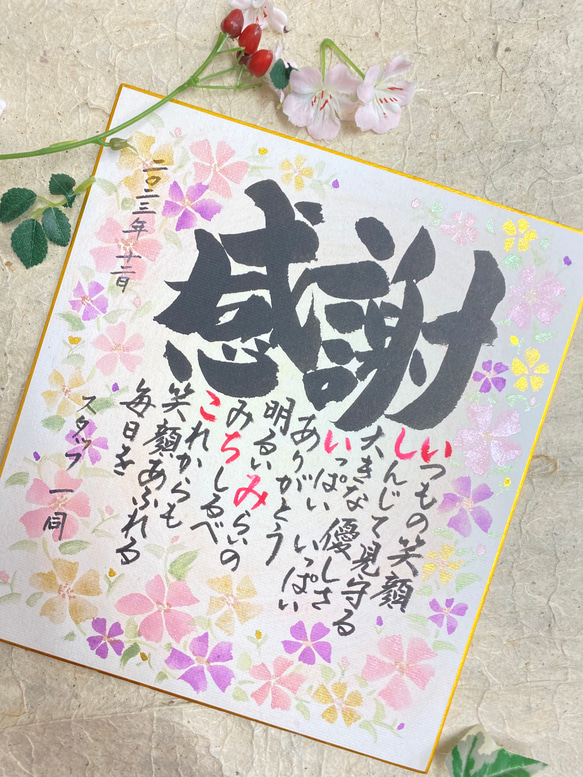 感謝
いつもの笑顔
しんじて見守る
大きな優しさ
いっぱい いっぱい
ありがとう
明るいみらいの
みちしるべ
これからも
笑顔あふれる
毎日を
二〇二三年 十二月
スタッフ 一同